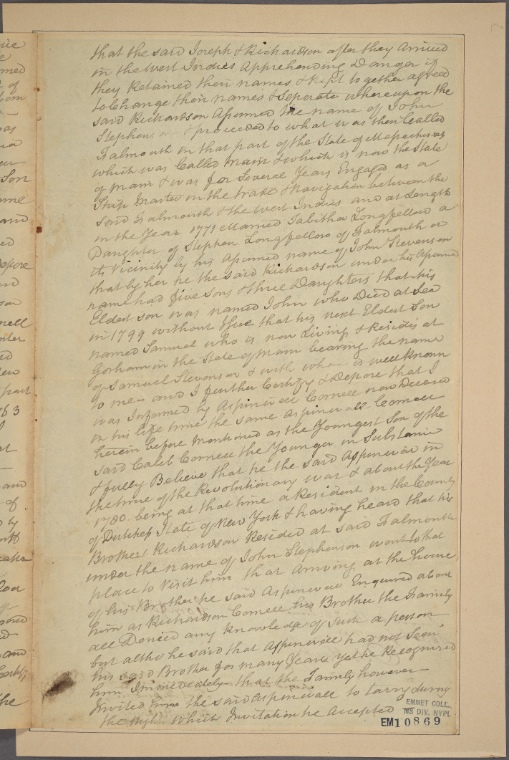 that the said Joseph & Richardson after they arrived
in the West Indies Apprehending Danger if
they Retained their names & kept together agreed
to Change their names & Seperate whereupon the
said Richardson Assumed the name of John
Stephenson & proceeded to what was then Called
Falmouth in that part of the State of Massachusetts
which was Called Maine & which is now the State
of Main & was for Several Years Engaged as a
Ship Master in the trade & Navigation between the
said Falmouth & the West Indies and at Length
in the Year 1771 Married Tabitha Longfellow a
Daughter of Stephen Longfellow of Falmouth or
its vicinity by his Assumed name of John Stevenson
that by her he the said Richardson under his Assumed
name had five Sons & three Daughters that his
Eldest son was named John who Died at Sea
in 1799 without Issue that his next Eldest Son
named Samuel who is now Living & Resides at
Gorham in the State of Main bearing the name
of Samuel Stevenson & with whom is well known
to me and I further Certify & Depose that I
was Informed by Aspinwall Cornell now Deceased
in his life time the same Aspinwall Cornell
herein before mentioned as the Youngest Son of the
said Caleb Cornell the Younger in Substance
& fully Believe that he the said Aspinwall in
the time of the Revolutionary War & about the Year
1780 being at that time a Resident in the County
of Dutchess State of New York & having heard that his
Brother Richardson Resided at said Falmouth
under the name of John Stephenson went to that
place to Visit him that Arriving at the home
of his Brother he said Aspinwall Enquired about
him as Richardson Cornell his Brother the Family
all Denied any Knowledge of Such a person
but altho he said that Aspinwall had not Seen
his said Brother for many Years yet he Recognised
him Immediately that the Family however
Invited him the said Aspinwall to tarry during
the Night which Invitation he Accepted
EMMET COLL.
MS DIV. NYPL
EM10869